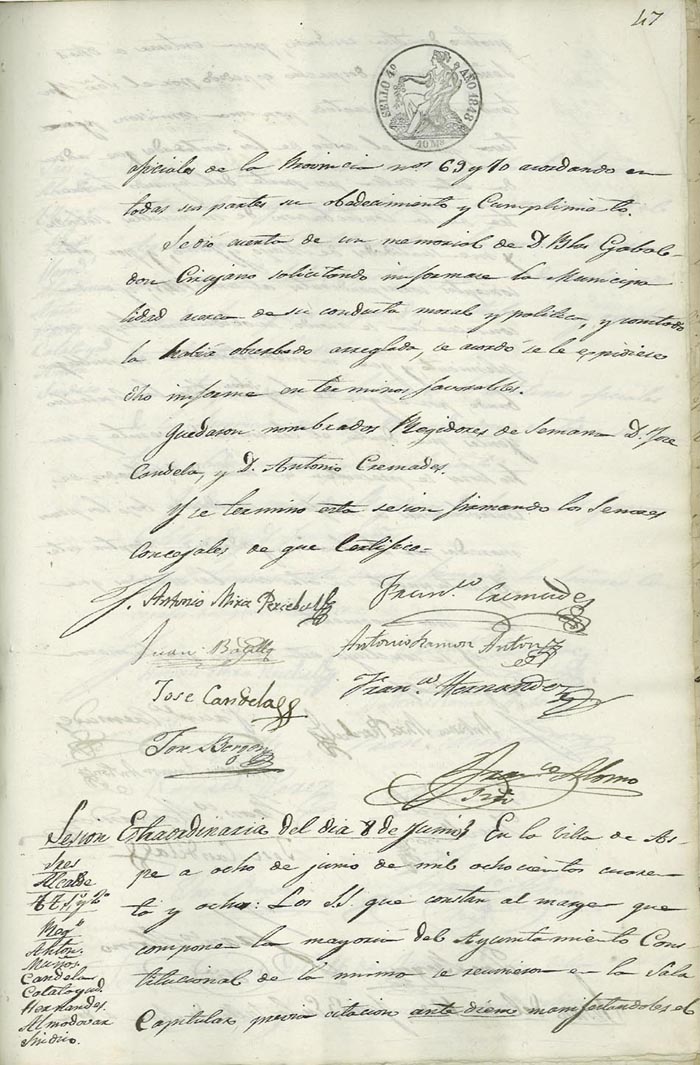 47
SELLO 4º AÑO 1848
40 Ms
oficiales de la Provincia nos 69 y 70 acordando en
todas sus partes su obedecimiento y Cumplimiento.
Se dió cuenta de un memorial de D. Blas Gabal-
don Cirujano solicitando informase la Municipa
lidad acerca de su conducta moral y politica, y como toda
la habia obserbado arreglada, se acordó se le espidiese
dho informe en terminos favorables.
Quedaron nombrados Regidores de Semana D. Jose
Candela, y D. Antonio Cremades.
Y se terminó esta sesion firmando los Señores
Concejales de que Certifico=
J. Antonio Mira Perceball
Franco Cremades
Juan
Antonio Ramon Anton
Jose Candela
Franco Hernandez
Jose
Franco Alonso
Srio
Sesion Estraordinaria del dia 8 de Junio
En la Villa de As-
pe a ocho de junio de mil ochocientos cuaren-
ta y ocho: Los SS. que constan al margen que
componen la mayoria del Ayuntamiento Cons
titucional de la misma se reunieron en la Sala
Capitular previa citacion ante diem manifestandoles el
Sres
Alcalde
Regs
Anton
Muñoz
Candela
Calatayud
Hernandes
Almodovar
Sindico